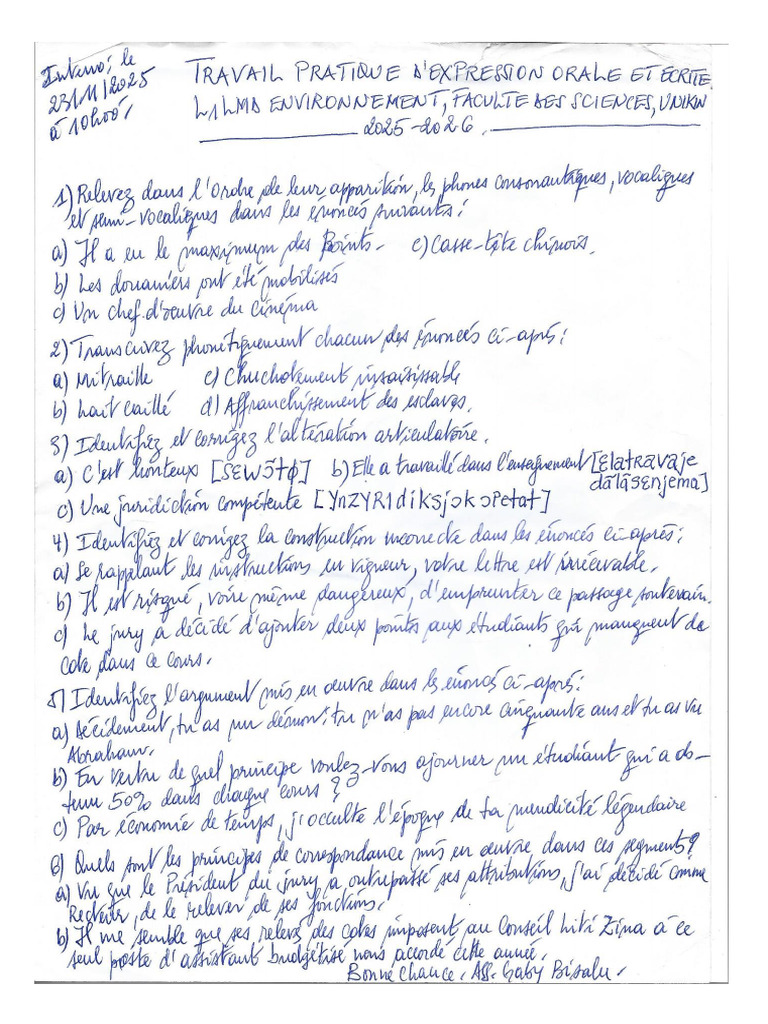 Interro, le
23/11/2025
à 10h00,
TRAVAIL PRATIQUE D'EXPRESSION ORALE ET ECRITE
L1 LMD ENVIRONNEMENT, FACULTE DES SCIENCES, UNIKIN
2025-2026
1) Relevez dans l'ordre de leur apparition, les phones consonantiques, vocaliques
et semi-vocaliques dans les énoncés suivants :
a) Il a eu le maximum des Points. e) Casse-tête chinois.
b) Les douaniers ont été mobilisés
c) Un chef-d'œuvre du cinéma
2) Transcrivez phonétiquement chacun des énoncés ci-après :
a) Mitraille c) Chuchotement insaisissable
b) Lait caillé d) Affranchissement des esclaves.
3) Identifiez et corrigez l'altération articulatoire.
a) C'est honteux [sɛwɔ̃tφ] b) Elle a travaillé dans l'enseignement [ɛlatravaje
dãlãsɛnjema]
c) Une juridiction compétente [ynzyRIdiksjɔkɔpetat]
4) Identifiez et corrigez la construction incorrecte dans les énoncés ci-après :
a) Se rappelant les instructions en vigueur, votre lettre est irrécevable.
b) Il est risqué, voire même dangereux, d'emprunter ce passage souterrain.
c) Le jury a décidé d'ajouter deux points aux étudiants qui manquent de
cote dans ce cours.
5) Identifiez l'argument mis en œuvre dans les énoncés ci-après :
a) Décidement, tu as un démon : tu n'as pas encore cinquante ans et tu as vu
Abraham.
b) En vertu de quel principe voulez-vous ajourner un étudiant qui a ob-
tenu 50% dans chaque cours ?
c) Par économie de temps, j'occulte l'époque de ta mendicité légendaire
6) Quels sont les principes de correspondance mis en œuvre dans ces segments ?
a) Vu que le Président du jury a outrepassé ses attributions, j'ai décidé comme
Recteur, de le relever de ses fonctions.
b) Il me semble que ses relevés des cotes imposent au Conseil Liti Zina à ce
seul poste d'assistant budgétisé nous accordé cette année.
Bonne Chance. Ass. Gaby Bisalu.